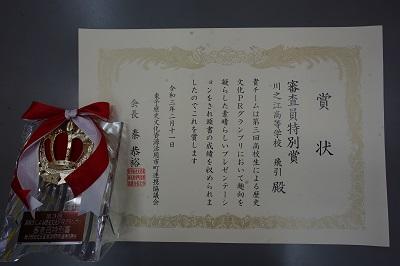 賞状
審査員特別賞
川之江高等学校 飛引 殿
貴チームは第三回高校生による歴史
文化PRグランプリにおいて趣向を
凝らした素晴らしいプレゼンテーシ
ョンをされ頭書の成績を収められま
したのでこれを賞します
令和三年二月十一日
会長 泰 恭裕
審査員特別賞